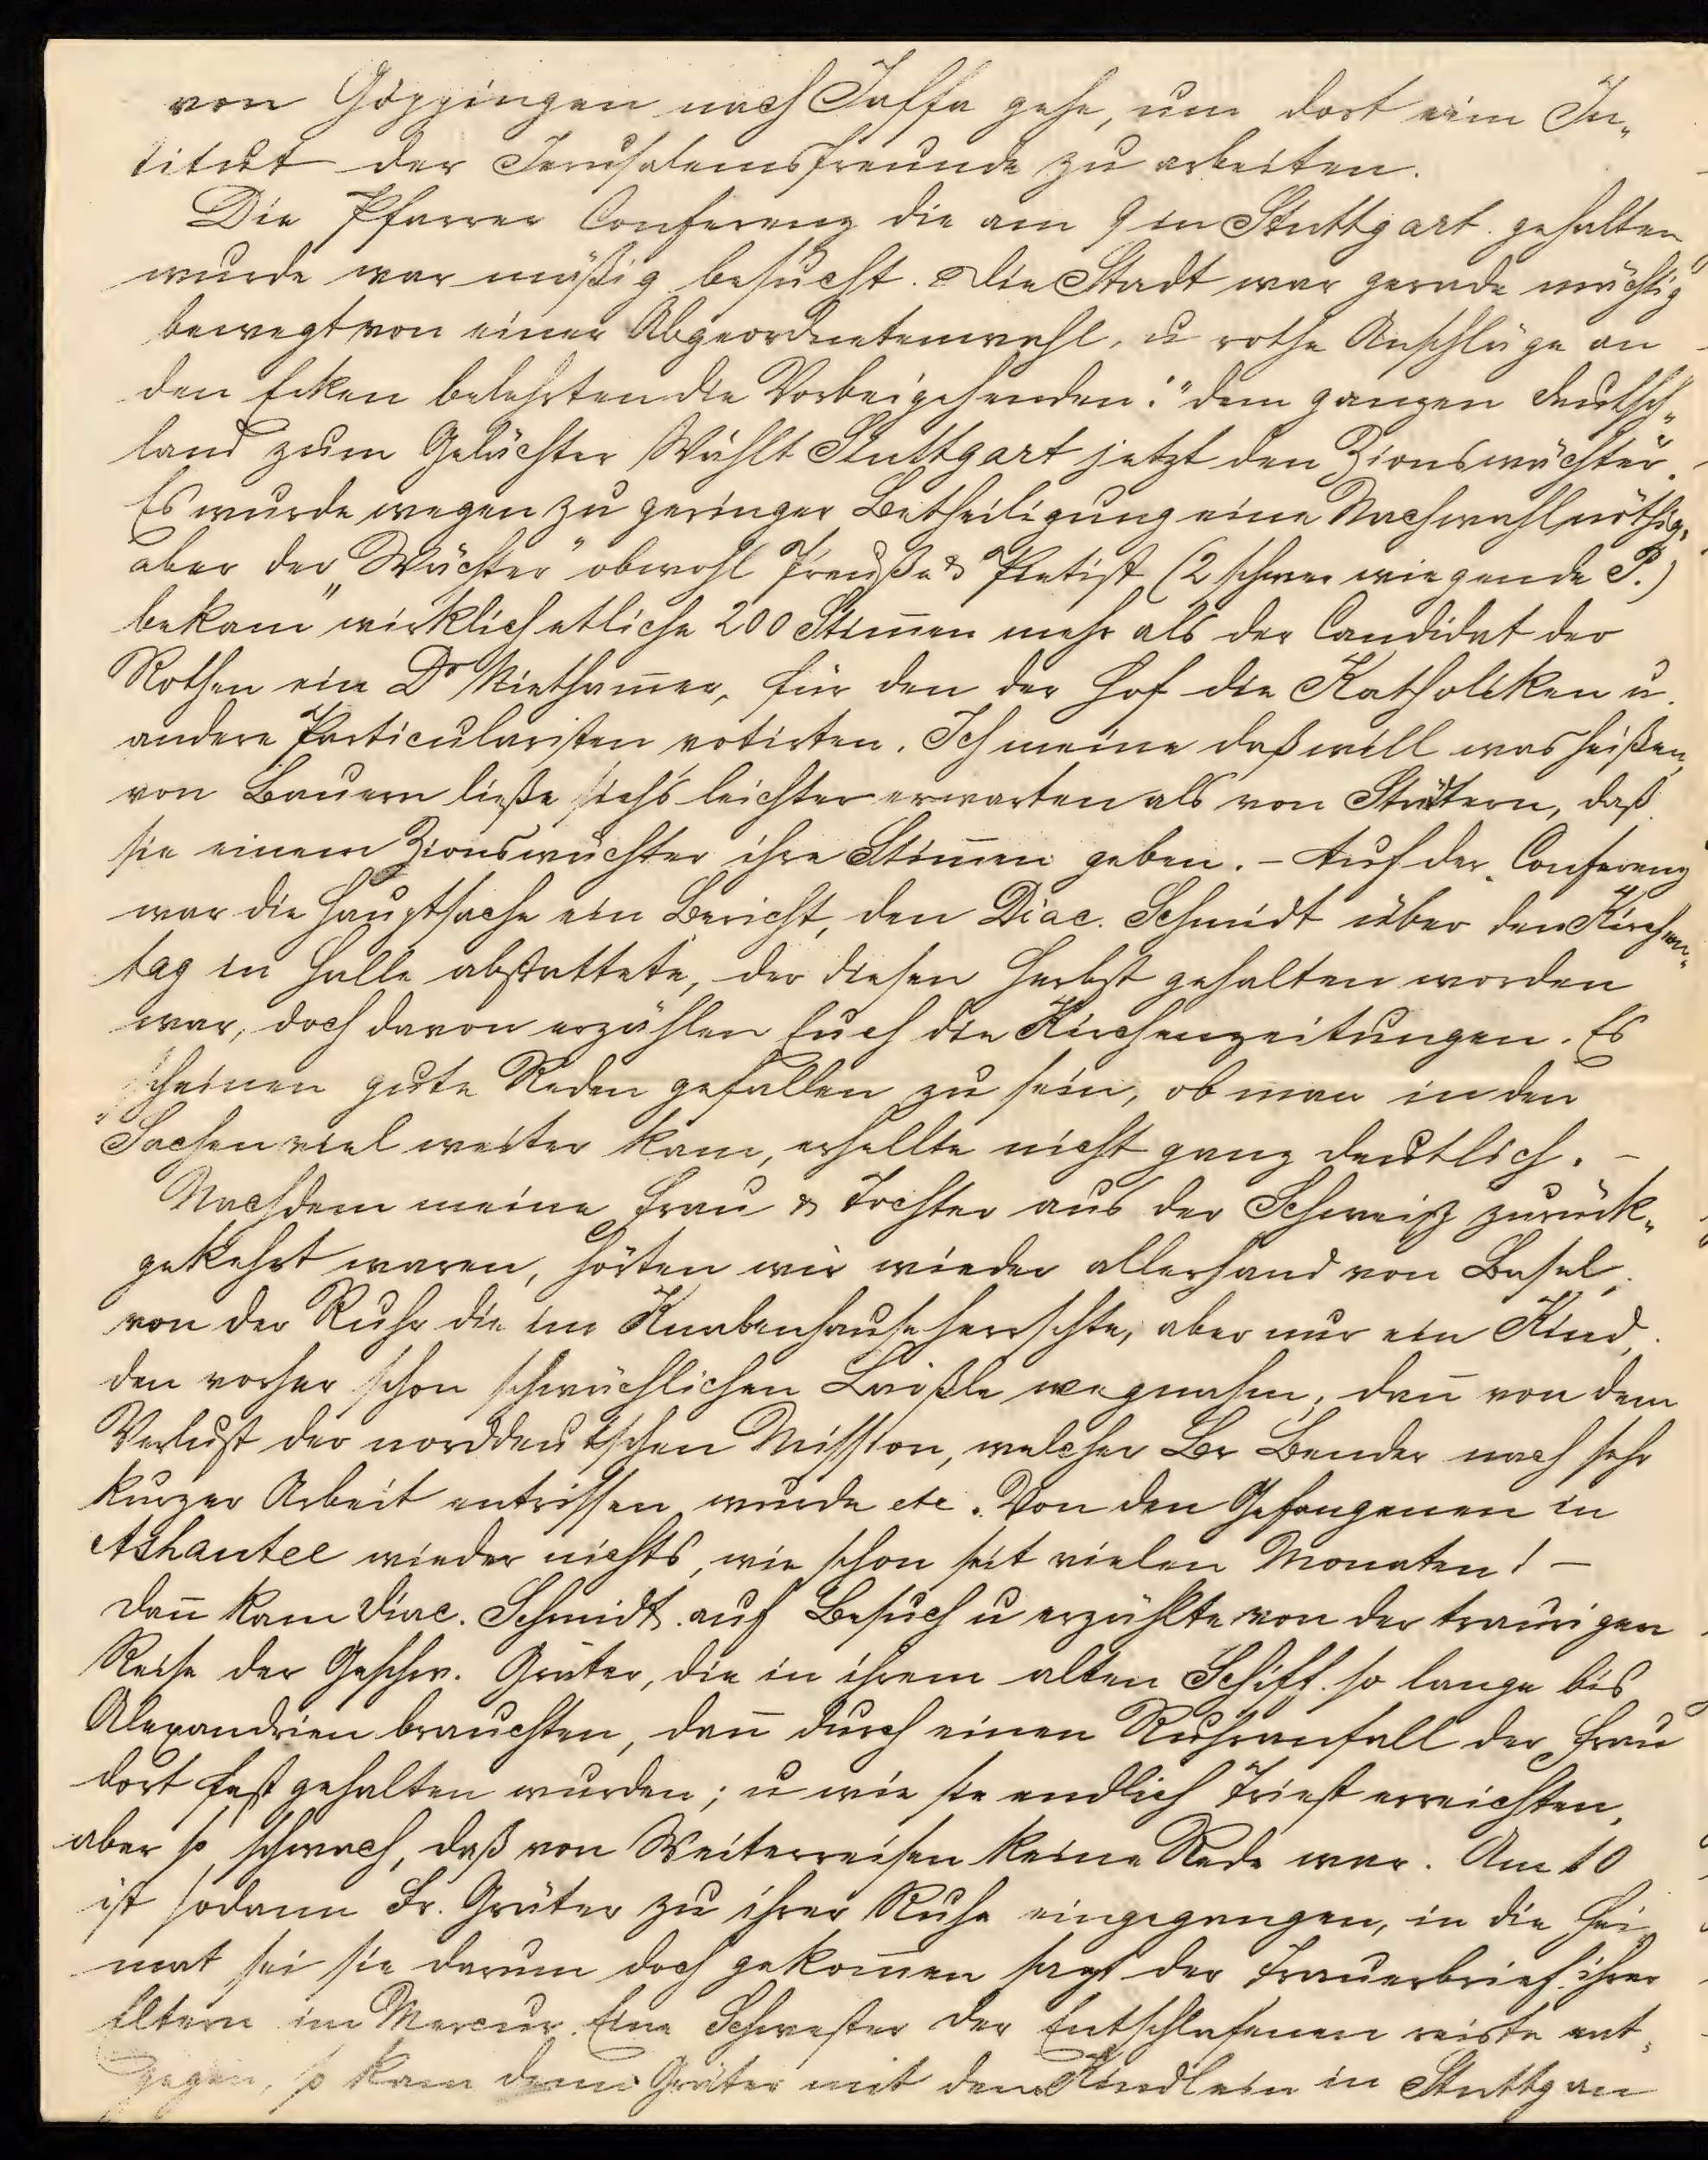 von Göppingen nach Jaffa gehe, um dort eim In-
titut der Jerusalemsfreunde zu arbeiten.
Die Pfarrer Conferenz die am 9 in Stuttgart gehalten
wurde war mäßig besucht. Die Stadt war gerade mächtig
bewegt von einer Abgeordnetenwahl, u rothe Anschläge an
den Ecken belehrten die Vorbeigehenden: "dem ganzen Deutsch-
land zum Gelächter Wählt Stuttgart jetzt den Zionswächter".
Es wurde wegen zu geringer Betheiligung eine Nachwahl nöthig,
aber der „Wächter" obwohl Preuße & Pietist (2 schwer wiegende P.)
bekam wirklich etliche 200 Stim̅en mehr als der Candidat der
Rothen ein Dr Nietham̅er, für den der Hof die Katholiken u.
andere Particularisten votirten. Ich meine daß will was heißen,
von Bauern ließe sichs leichter erwarten als von Städtern, daß
sie einem Zionswächter ihre Stim̅en geben. – Auf der Conferenz
war die Hauptsache ein Bericht, den Diac. Schmidt über den Kirchen-
tag in Halle abstattete, der diesen Herbst gehalten worden
war, doch davon erzählen Euch die Kirchenzeitungen. Es
scheinen gute Reden gefallen zu sein, ob man in den
Sachen viel weiter kam, erhellte nicht ganz deutlich. –
Nachdem meine Frau & Tochter aus der Schweiz zurück-
gekehrt waren, hörten wir wieder allerhand von Basel,
von der Ruhr die im Knabenhause herrschte, aber nur ein Kind,
den vorher schon schwächlichen wegnahm, dan̅ von dem
Verlust der norddeutschen Mission, welcher Br Bender nach sehr
kurzer Arbeit entrissen wurde etc. Von den Gefangenen in
Ashantee wieder nichts, wie schon seit vielen Monaten! –
Dan̅ kam Diac. Schmidt auf Besuch u erzählte von der traurigen
Reise der Geschw. Gräter, die in ihrem alten Schiff so lange bis
Alexandrien brauchten, dan̅ durch einen Ruhranfall der Frau
dort fest gehalten wurden; u wie sie endlich Triest erreichten,
aber so schwach, daß von Weiterreisen keine Rede war. Am 10
ist sodann Fr. Gräter zu ihrer Ruhe eingegangen, in die Hei-
mat sei sie darum doch gekom̅en sagt der Trauerbrief ihrer
Eltern im Mercur. Eine Schwester der Entschlafenen reiste ent-
gegen, so kam denn Gräter mit dem Kindlein in Stuttgar